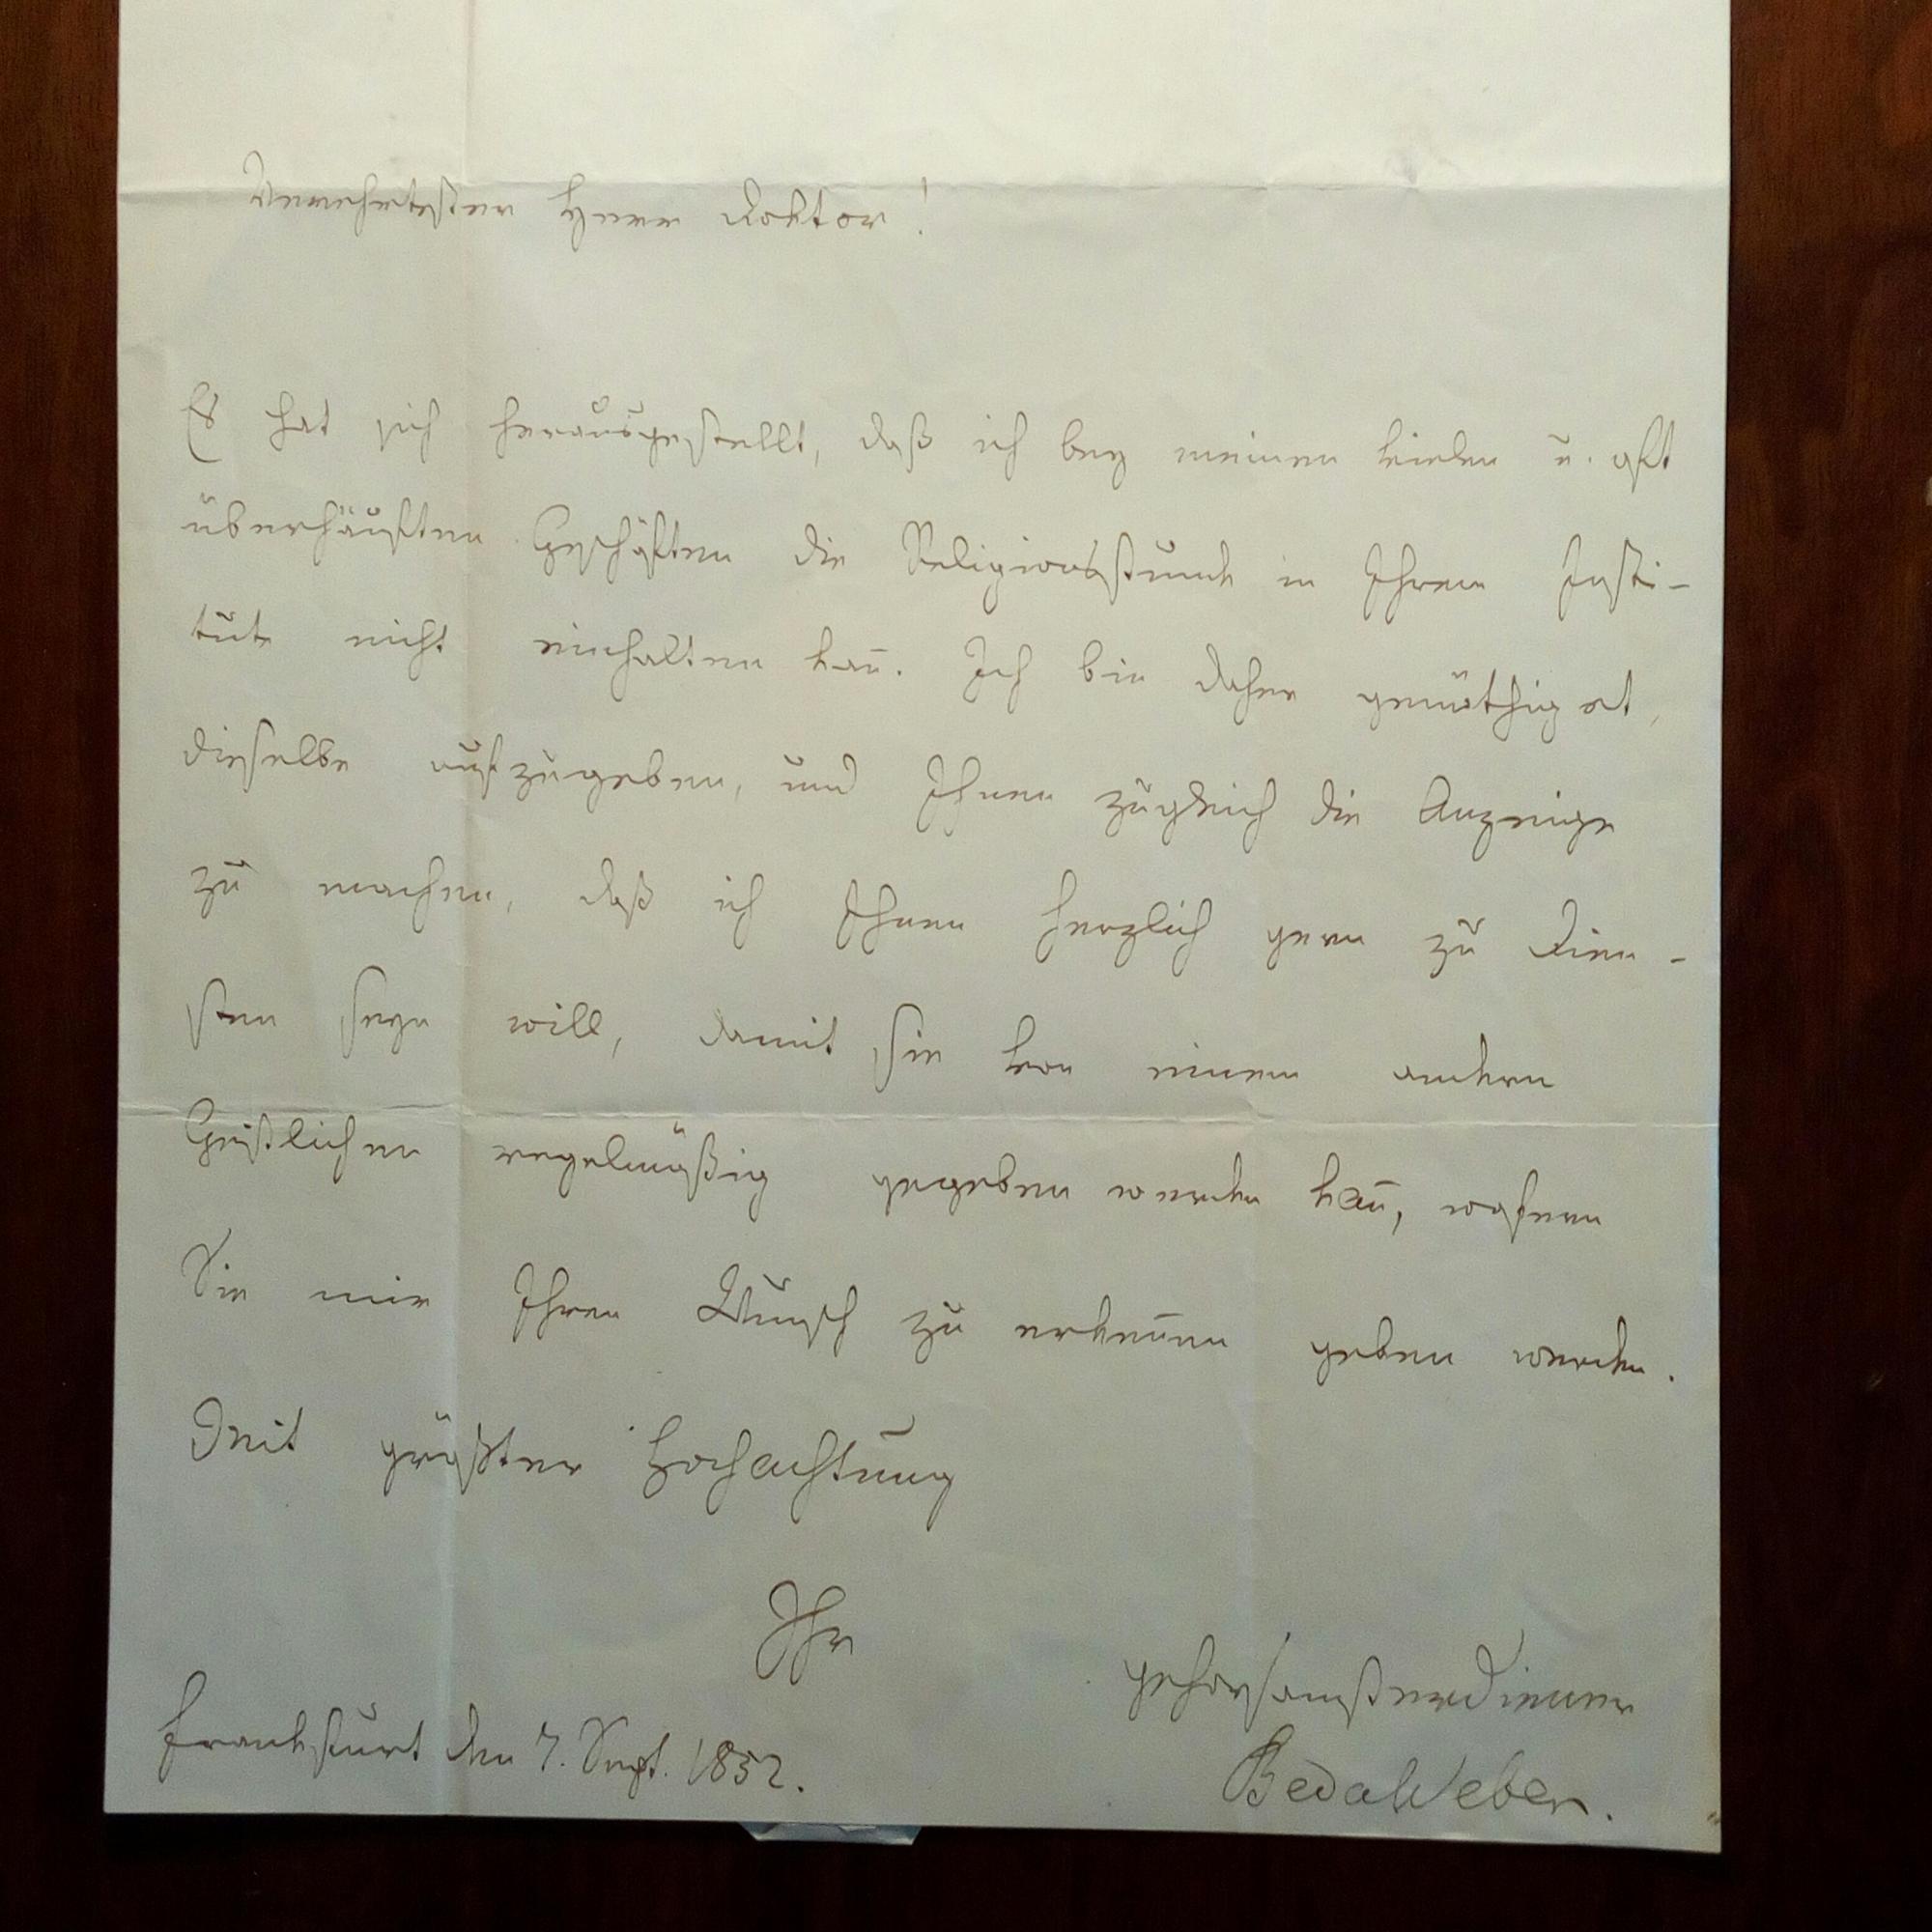 Verehrtester Herr Doktor!
Es hat sich herausgestellt, daß ich bey meinen vielen u. oft
überhäuften Geschäften die Religionsstunde in Ihrem Insti-
tute nicht einhalten kan̄. Ich bin daher genöthiget,
dieselbe aufzugeben, und Ihnen zugleich die Anzeige
zu machen, daß ich Ihnen herzlich gern zu Dien-
sten seyn will, damit sie von einem andern
Geistlichen regelmäßig gegeben werden kan̄, wofern
Sie mir Ihren Wunsch zu erken̄en geben werden.
Mit größter Hochachtung
Ihr
gehorsamster Diener
Frankfurt den 7. Sept. 1852.
Beda Weber.